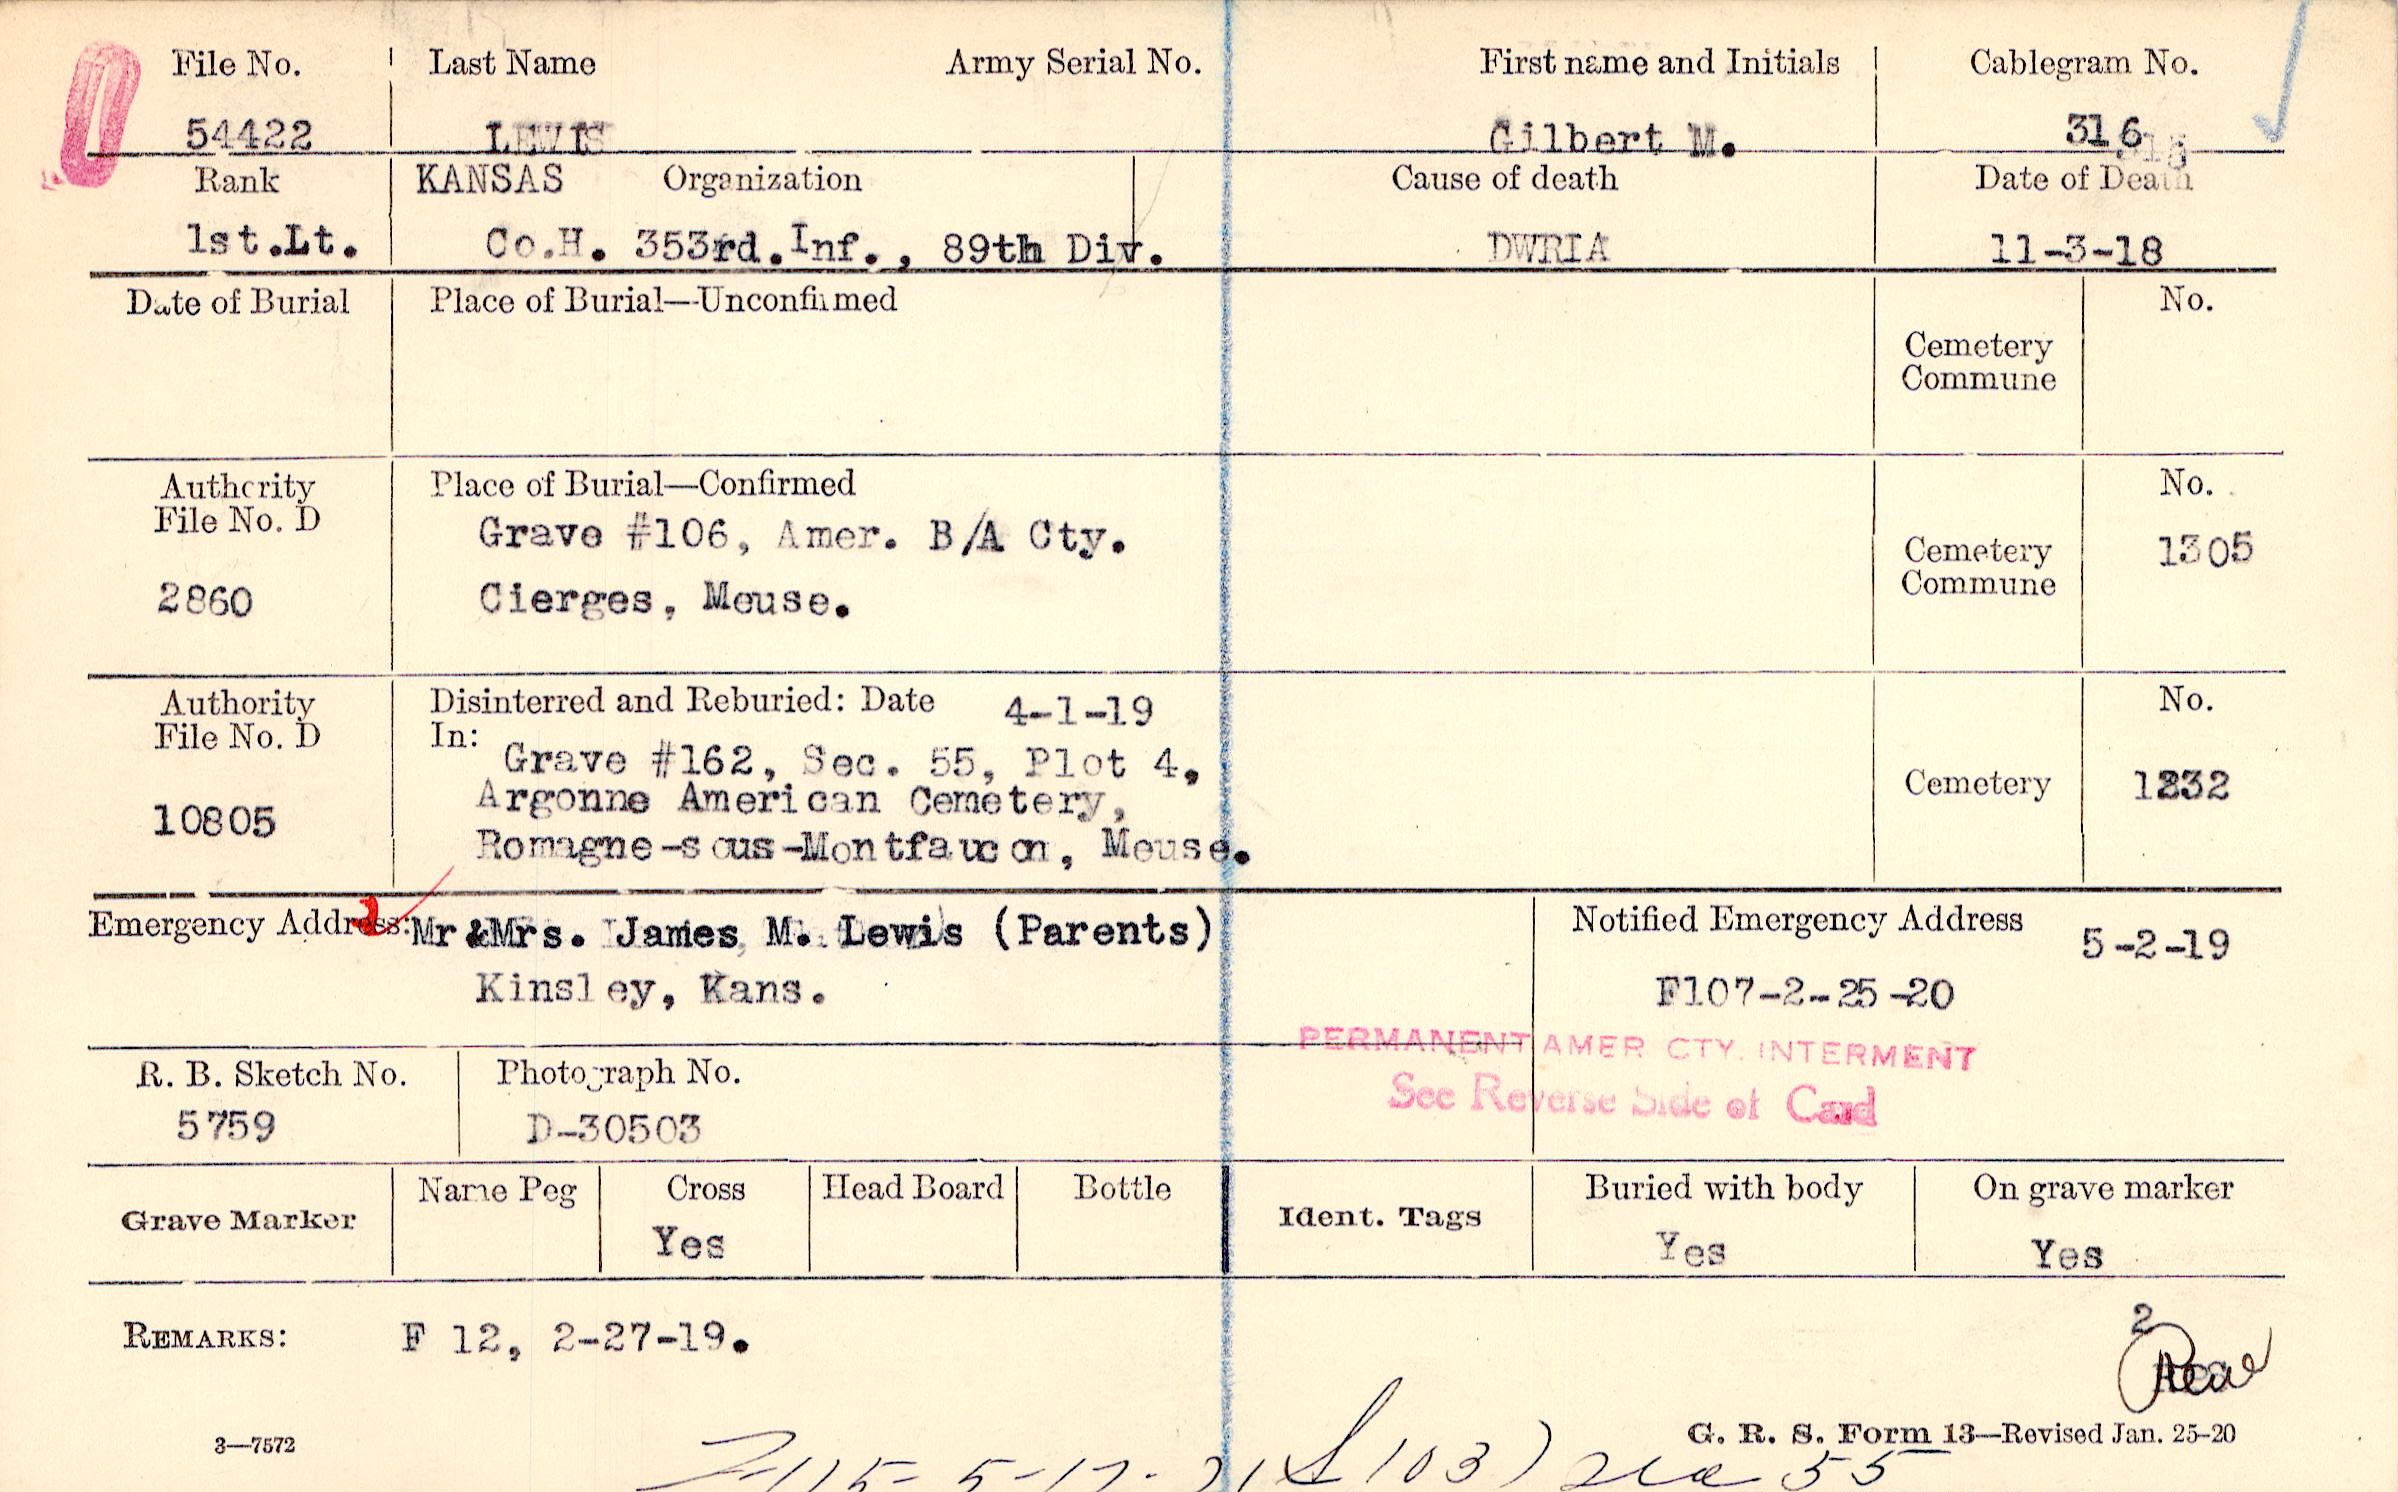 File No. Last Name Army Serial No. First name and Initials Cablegram No.
54422 LEWIS Gilbert M. 316
Rank KANSAS Organization Cause of death Date of Death
1st.Lt. Co.H. 353rd.Inf., 89th Div. DWRIA 11-3-18
Date of Burial Place of Burial—Unconfirmed No.
Cemetery
Commune
Authority Place of Burial—Confirmed No.
File No. D Grave #106, Amer. B/A Cty.
Cemetery 1305
Commune
2860 Cierges, Meuse.
Authority Disinterred and Reburied: Date 4-1-19 No.
File No. D In:
Grave #162, Sec. 55, Plot 4,
Argonne American Cemetery, Cemetery 1232
10805
Romagne-sous-Montfaucon, Meuse.
Emergency Address: Mr &Mrs. James M. Lewis (Parents) Notified Emergency Address 5-2-19
Kinsley, Kans. F107-2-25-20
PERMANENT AMER CTY. INTERMENT
See Reverse Side of Card
R. B. Sketch No. Photograph No.
5759 D-30503
Grave Marker Name Peg Cross Head Board Bottle Ident. Tags Buried with body On grave marker
Yes Yes Yes
2
REMARKS: F 12, 2-27-19.
3—7572 G. R. S. Form 13—Revised Jan. 25-20
5-17-21 (103) 55